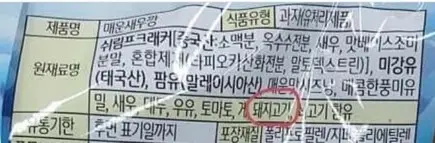 제품명 매운새우깡 식품유형 과자(유처리제품)
원재료명 쉬림프크래커[중국산:소맥분, 옥수수전분, 새우, 맛베이스조미
분말, 혼합제제(타피오카산화전분, 말토덱스트린)], 미강유
(태국산), 팜유(말레이시아산), 매운맛시즈닝, 매콤한풍미유
밀, 새우, 대두, 우유, 토마토, 돼지고기, 함유
유통기한 후면 표기일까지 포장재질